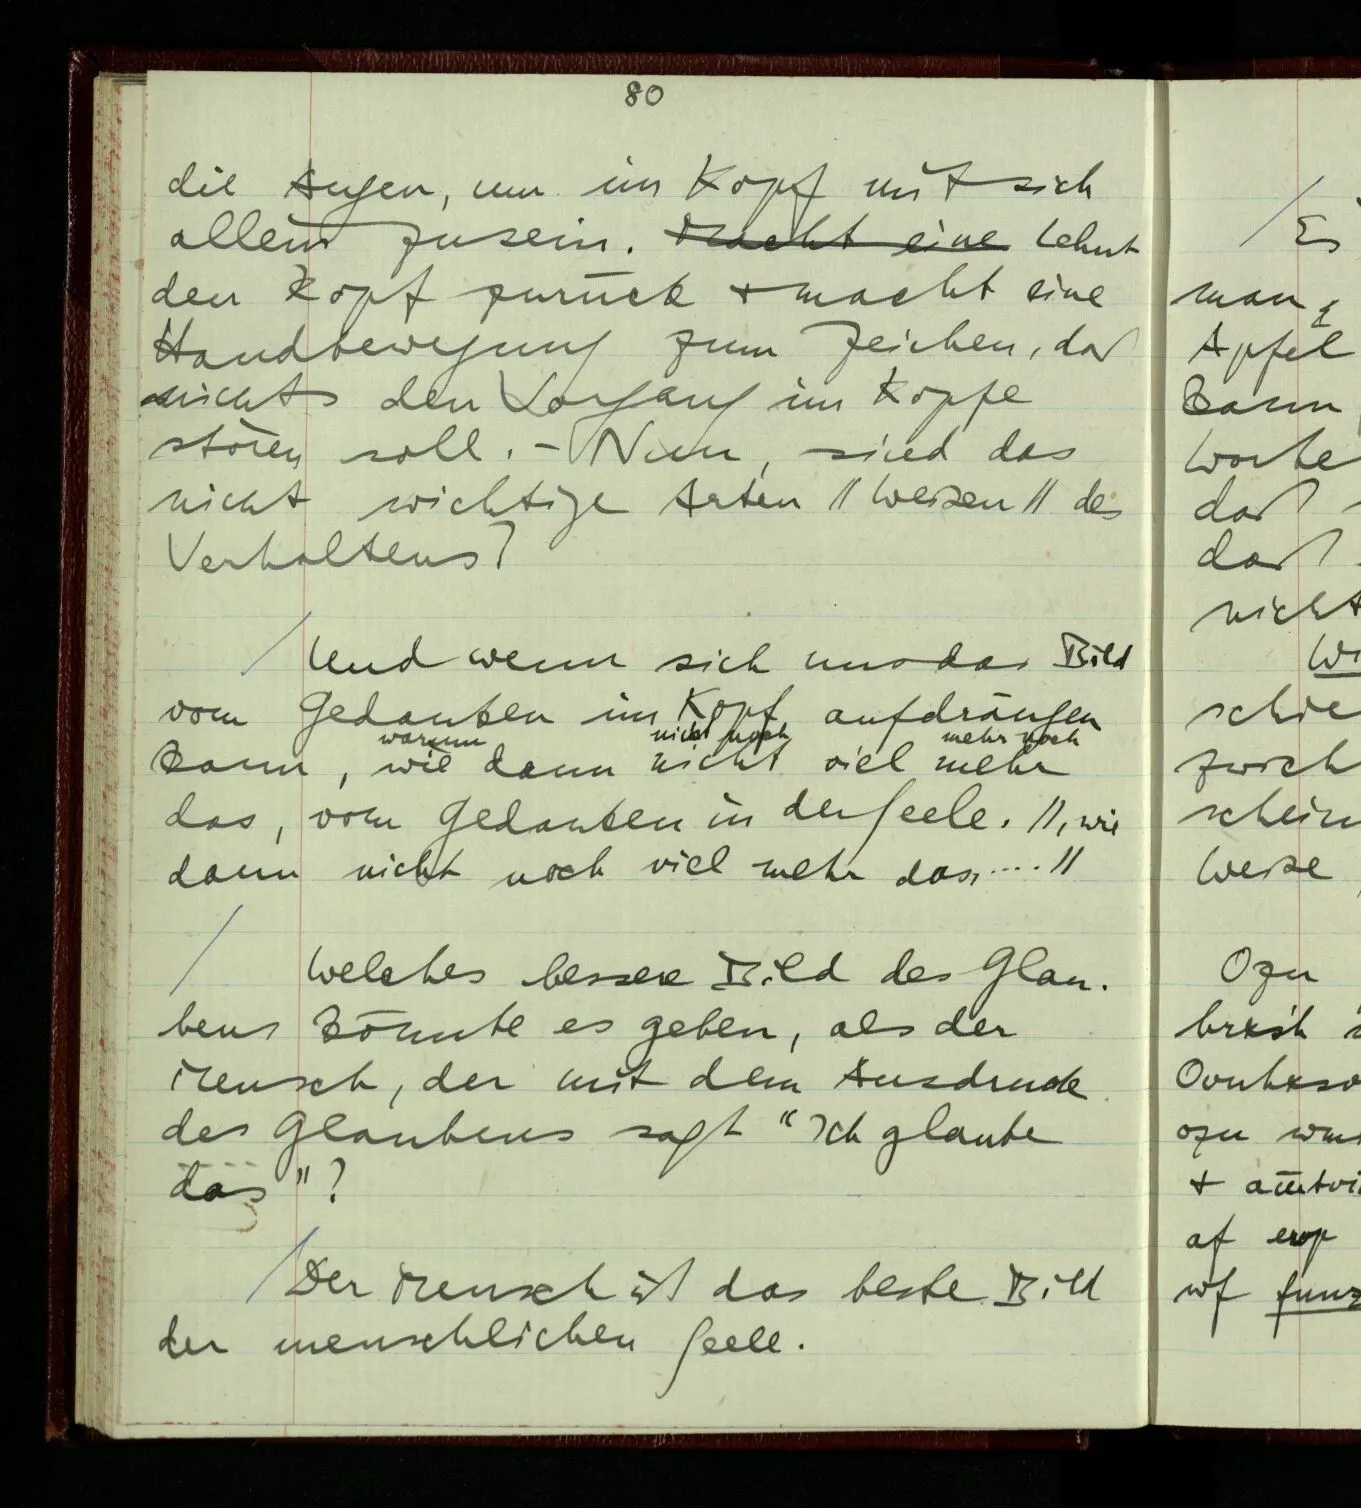 80
die Augen, um im Kopf mit sich
allein zusein. Macht eine lehnt
den Kopf zurück + macht eine
Handbewegung zum Zeichen, daß
nichts den Vorgang im Kopfe
stören soll. – Nun, sind das
nicht wichtige Arten // Weisen // des
Verhaltens?
/ Und wenn sich uns das Bild
vom Gedanken im Kopf aufdrängen
warum nicht noch mehr noch
kann, wie dann nicht viel mehr
das, vom Gedanken in der Seele. //, wie
dann nicht noch viel mehr das .... //
/ Welches bessere Bild des Glau-
bens könnte es geben, als der
Mensch, der mit dem Ausdruck
des Glaubens sagt "Ich glaube
das"?
/ Der Mensch ist das beste Bild
der menschlichen Seele.
/ Es
man
Apfel
kann
Worte
daß
daß
nicht
schie
zwisch
schein
Weise
Ozu
brxsh
ozu
+
af
wf